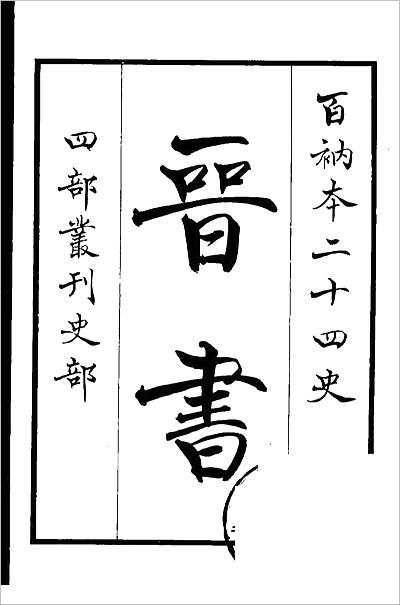 百衲本二十四史
晉書
四部叢刊史部